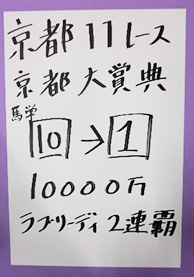 京都11レース
京都大賞典
馬単
10→1
10000万
ラブリーデイ2連覇